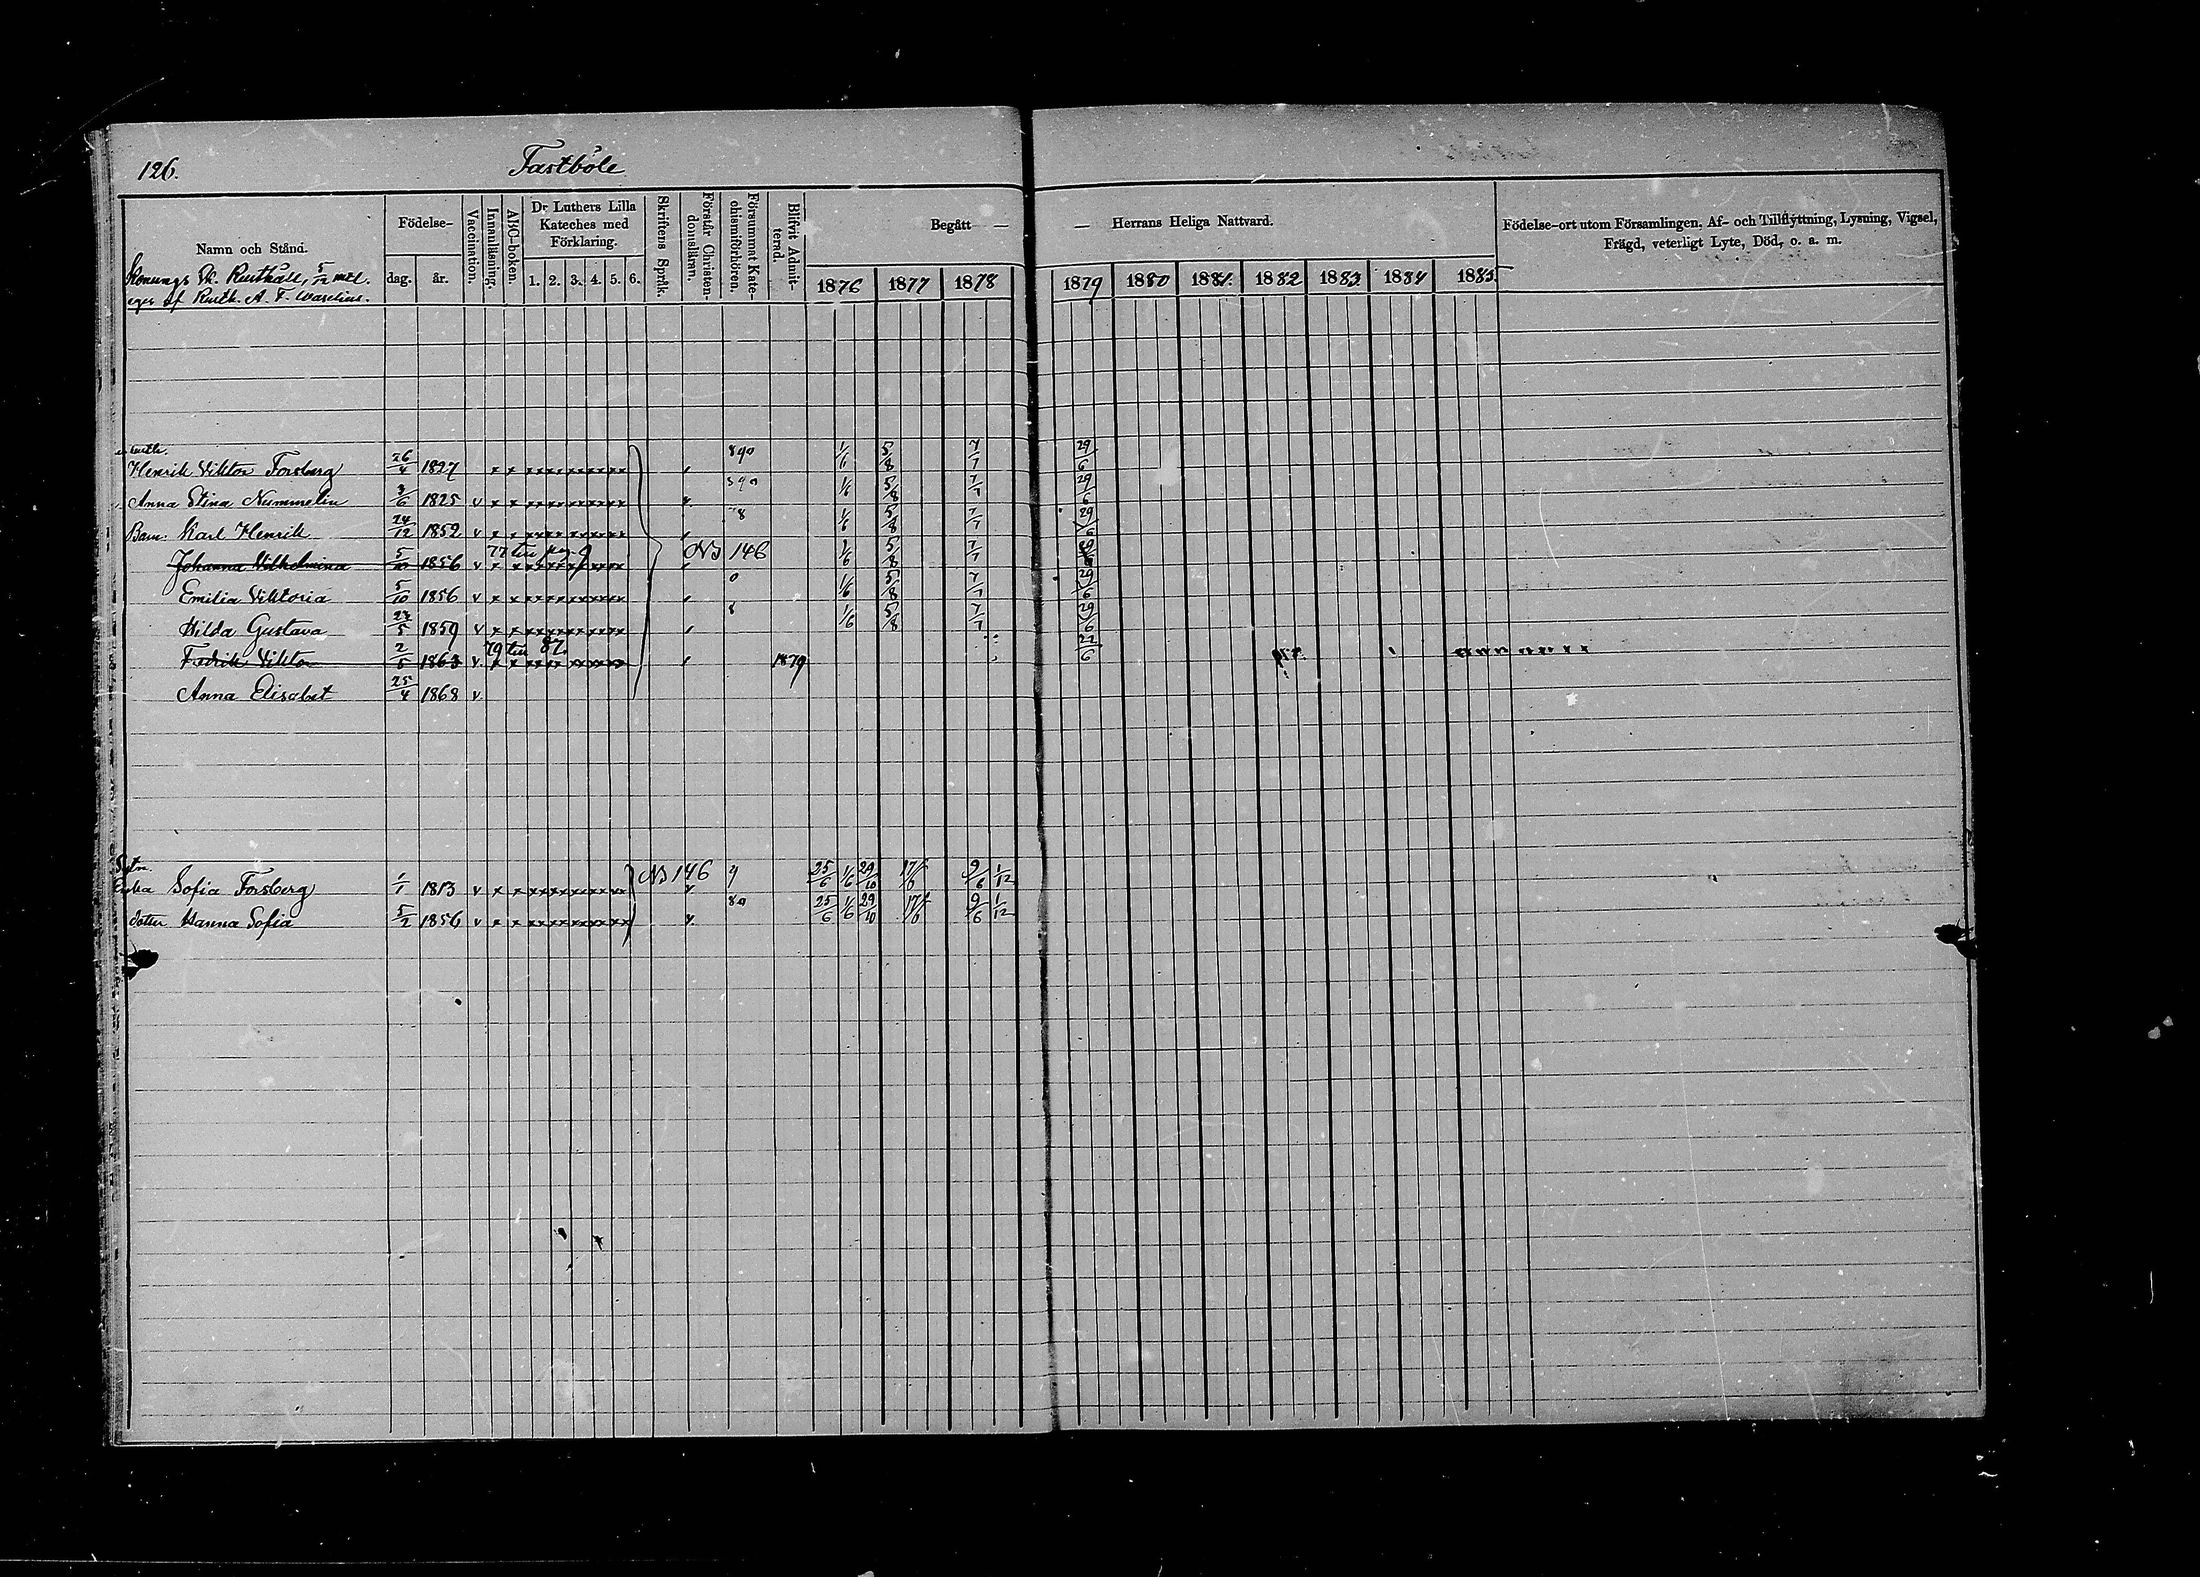 126.
Fastböle
Namn och Stånd.
Födelse-
dag.
år.
Vaccination.
Innanläsning.
ABC-boken.
Dr Luthers Lilla
Kateches med
Förklaring.
1. 2. 3. 4. 5. 6.
Skriftens Språk.
Förstår Christen-
domsläran.
Försummat Kate-
chismiförhören.
Blifvit Admit-
terad.
Begått —
— Herrans Heliga Nattvard.
1876 1877 1878 1879 1880 1881. 1882 1883 1884 1885.
Födelse-ort utom Församlingen, Af- och Tillflyttning, Lysning, Vigsel,
Frägd, veterligt Lyte, Död, o. a. m.
Henrik Viktor Forsberg 26/4 1827 890 1/6 5/8 7/7 29/6
Anna Stina Nummelin 3/6 1825 v 1/6 5/8 7/7 29/6
Barn: Karl Henrik 24/12 1852 v 8 1/6 5/8 7/7 29/6
Johanna Vilhelmina 5/10 1856 v 77 till N3 146 1/6 5/8 7/7 29/6
Emilia Viktoria 5/10 1856 v 0 1/6 5/8 7/7 29/6
Hilda Gustava 27/5 1859 v 8 1/6 5/8 7/7 29/6
Fredrik Viktor 2/5 1863 v 79 till 87. 1879 22/6
Anna Elisabet 25/4 1868 v.
Sofia Forsberg 1/1 1813 v N3 146 9 25/6 1/6 29/10 17/6 9/6 1/12
dotter Hanna Sofia 5/2 1856 v 80 25/6 1/6 29/10 17/6 9/6 1/12